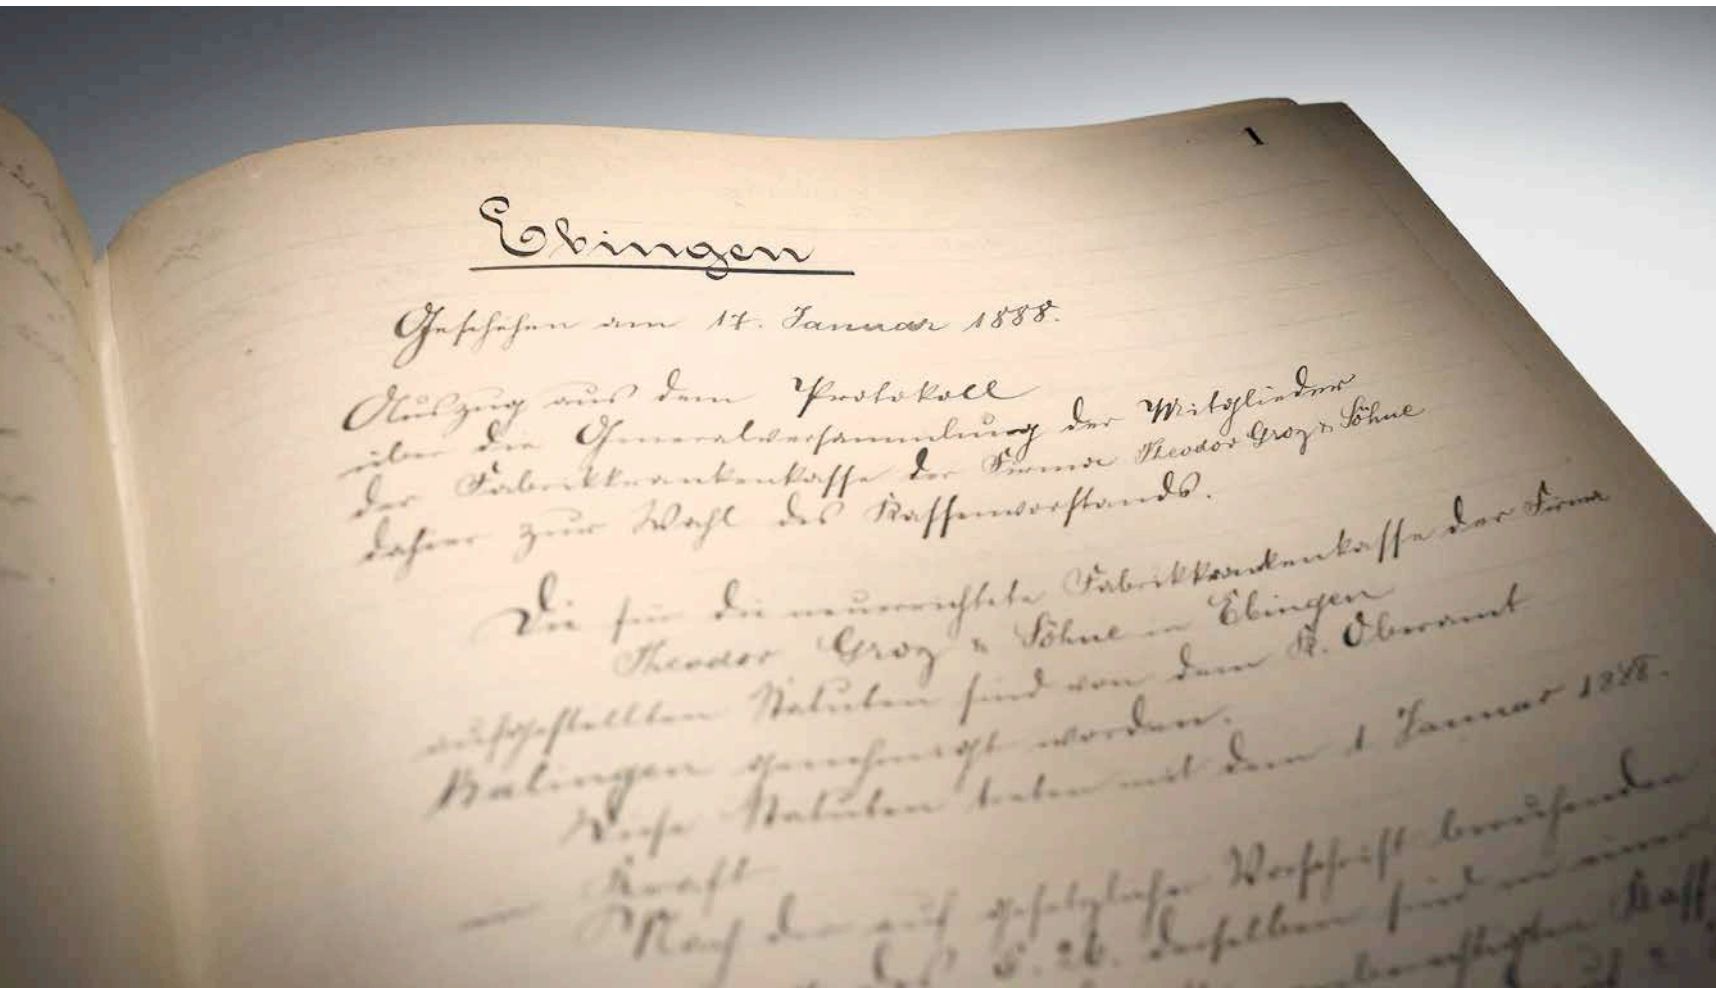 1
Ebingen
Geschehen am 17. Januar 1888.
Auszug aus dem Protokoll
über die Generalversammlung der Mitglieder
der Fabrikkrankenkasse der Firma Theodor Groz & Söhne
dahier zur Wahl des Kassenvorstands.
Die für die neuerrichtete Fabrikkrankenkasse der Firma
Theodor Groz & Söhne in Ebingen
aufgestellten Statuten sind von dem K. Oberamt
Balingen genehmigt worden.
Diese Statuten treten mit dem 1 Januar 1888.
in Kraft
Nach der auf gesetzlicher Vorschrift beruhenden
des §. 26. derselben sind in einer